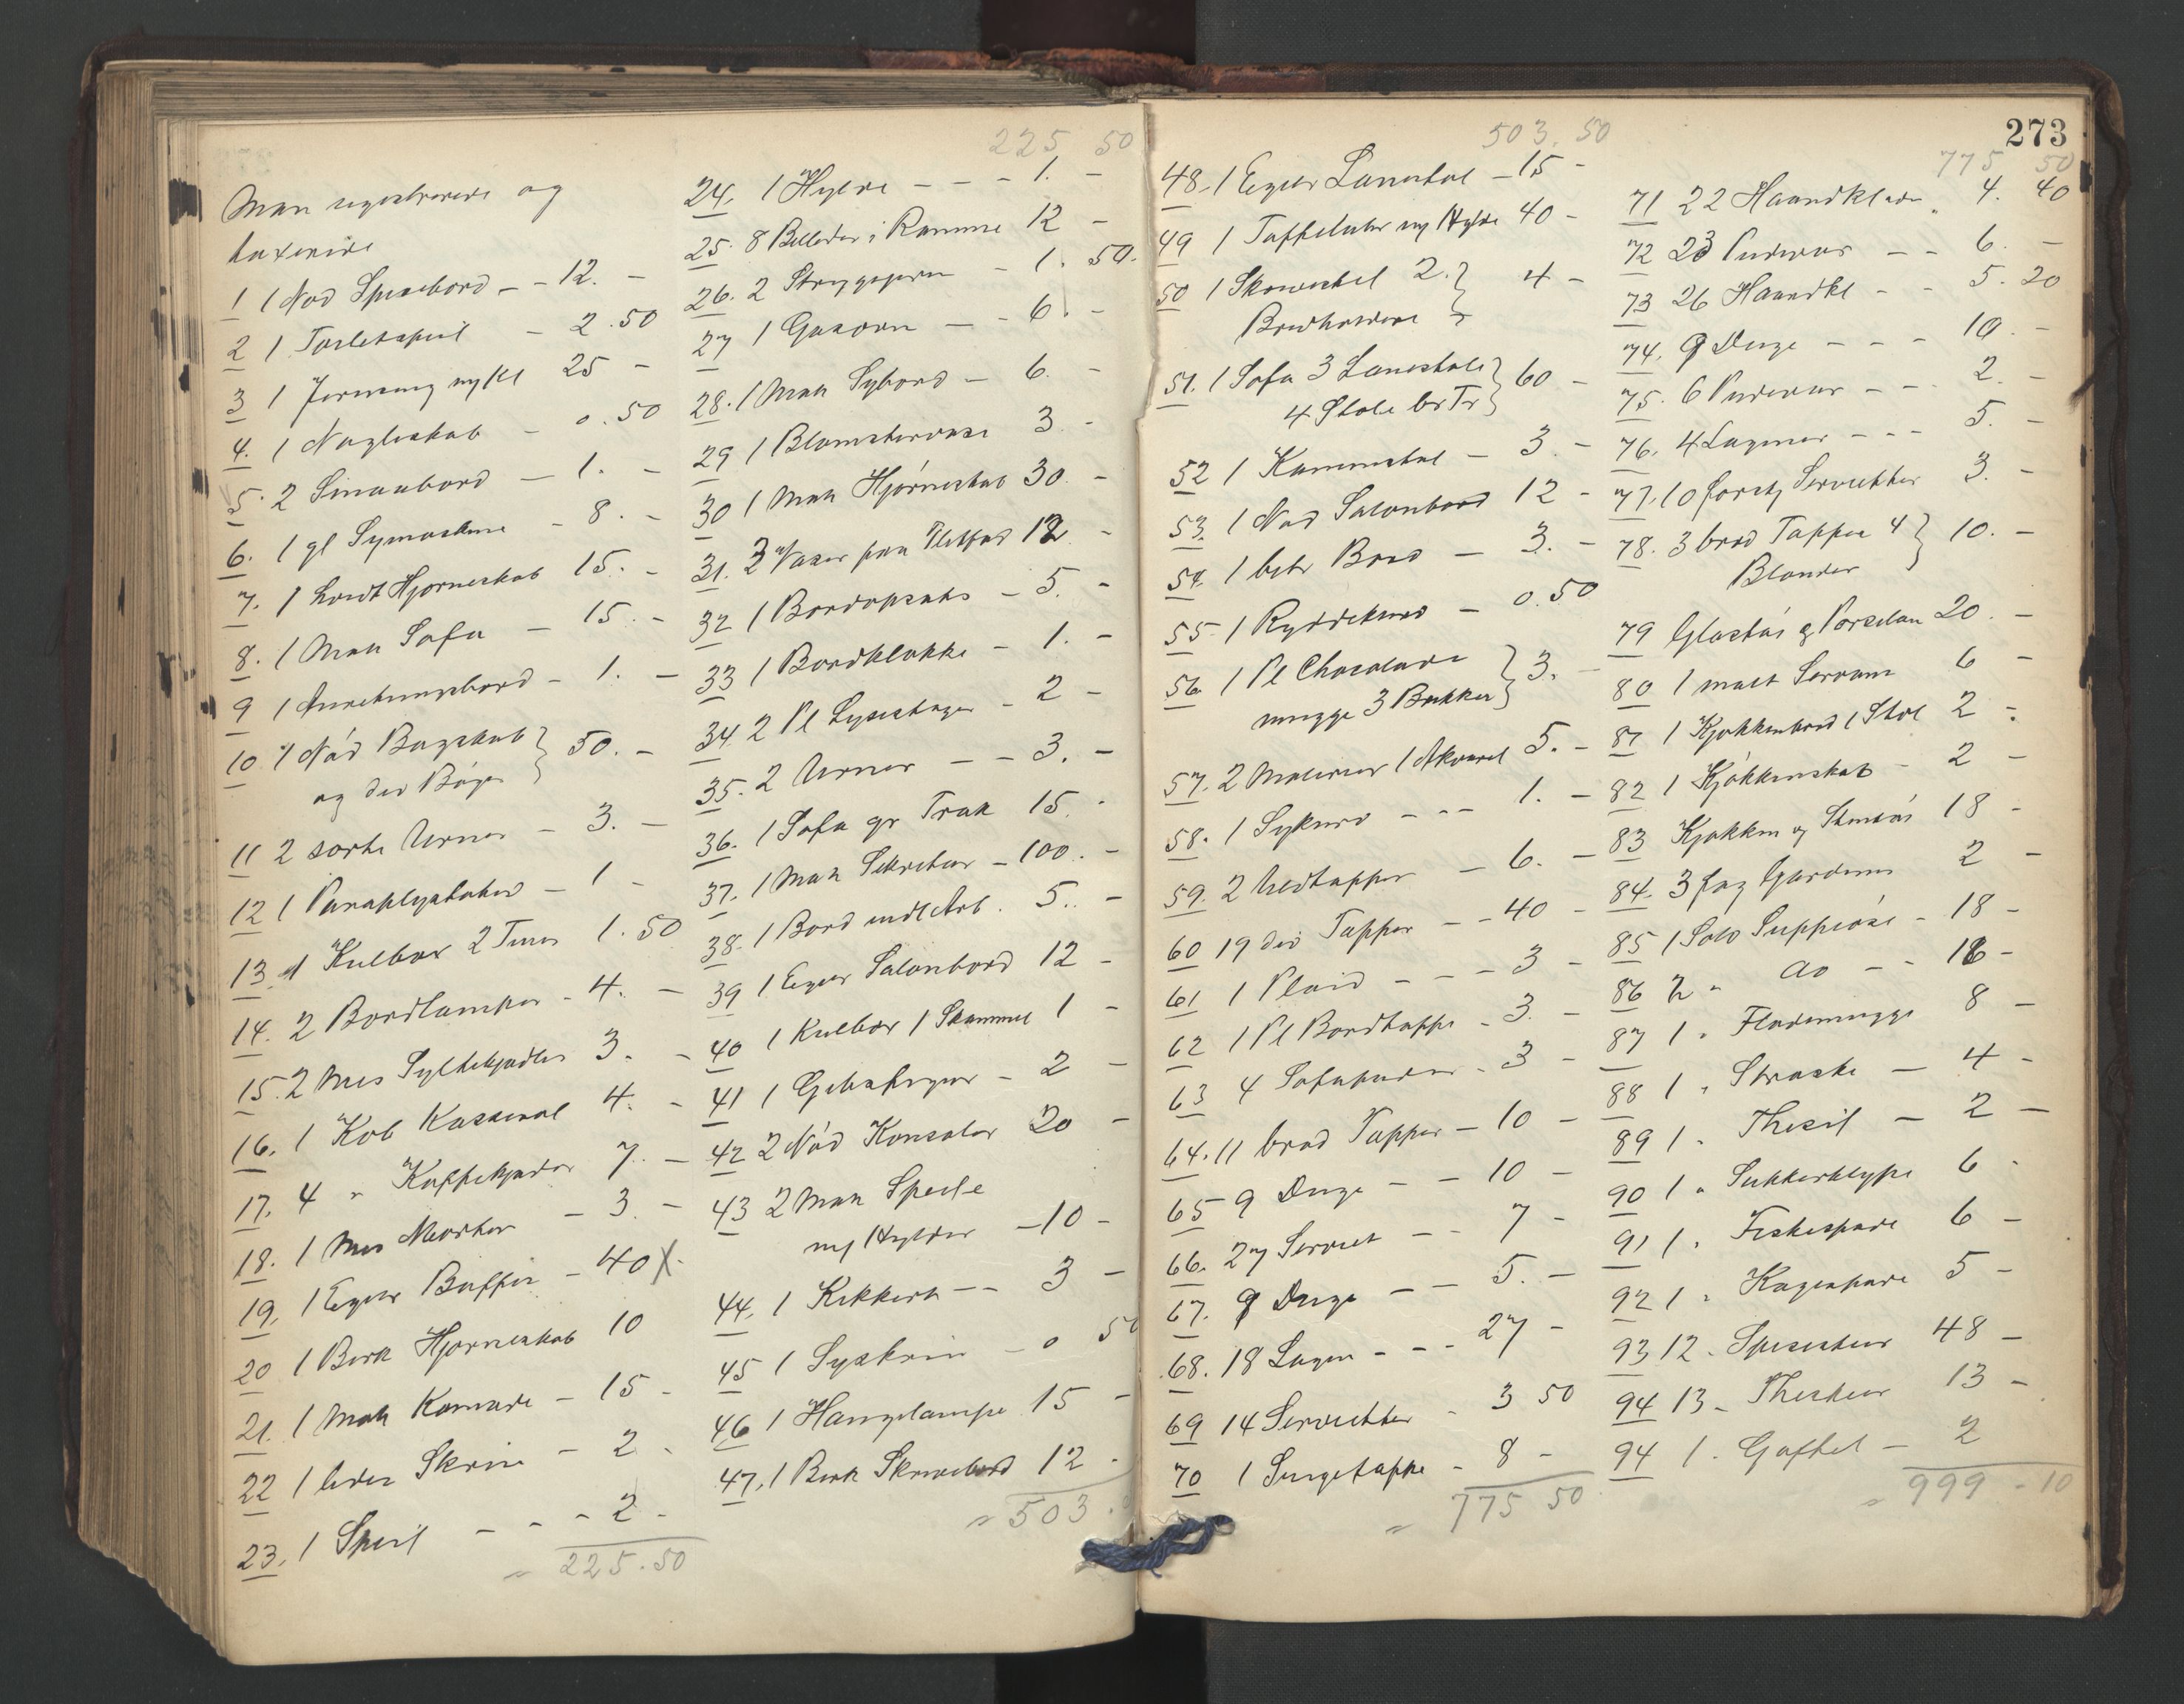 225 50
Man registrerede og
taxerede
1 1 Nød Spisebord - - 12. -
2 1 Toiletspeil - 2.50
3 1 Jernseng m/Kl 25 -
4. 1 Nøgleskab - 0.50
5. 2 Smaabord - 1. -
6. 1 gl Symaskine - 8. -
7. 1 Hjørneskab 15. -
8. 1 Mah Sofa - 15. -
9 1 Anretningsbord - 1. -
10 1 Nød Bogskab } 50. -
og div Bøger
11 2 sorte Urner - 3. -
12 1 Paraplystativ - 1 -
13. 1 Kulbox 2 Tiner 1.50
14. 2 Bordlamper - 4. -
15. 2 Mes Syltekjedler 3. -
16. 1 Kob Kasserol 4. -
17. 4 " Kaffekjedler 7. -
18. 1 Mes Morter - 3. -
19. 1 Egetr Buffet - 40 X -
20 1 Birk Hjørneskab 10
21. 1 Mah Komode - 15 -
22 1 Skrin - 2 -
23. 1 Speil - - - 2 -
= 225.50
24. 1 Hylde - - - 1. -
25. 8 Billeder i Ramme 12 -
26. 2 Strygejern - 1. 50.
27 1 Gasovn - - 6. -
28. 1 Mah Sybord - 6. -
29 1 Blomstervase 3 -
30 1 Mah Hjørneskab 30. -
31. 3 Vaser paa 12. -
32 1 Bordopsats - 5. -
33 1 Bordklokke - 1. -
34. 2 Pl Lysestager - 2 -
35. 2 Urner - - 3. -
36. 1 Sofa gr Træk 15. -
37. 1 Mah Sekretær - 100. -
38. 1 Bord indl Arb. 5. -
39 1 Egetr Salonbord 12 -
40 1 Kulbox 1 Skammel 1 -
41 1 Gibsfigur - 2 -
42 2 Nød Konsoler 20 -
43 2 Mah Speile
m/ Hylder - 10 -
44. 1 Kikkert - - 3 -
45 1 Syskrin - 0 50
46 1 Hængelampe 15 -
47. 1 Birk Skrivebord 12 -
= 503.
503. 50
273
48. 1 Egetr Lænestol - 15 -
49 1 Taffeluhr m/ Hylde 40 -
50 1 Skammel 2 } 4 -
Brevholdere
51. 1 Sofa 3 Lænestole } 60 -
4 Stole br Tr
52 1 Kurvstol - 3. -
53. 1 Nød Salonbord 12 -
54. 1 Bord - 3. -
55. 1 Ryddekurv - 0.50
56. 1 Pl Chocolade } 3. -
mugge 3 Bakker
57. 2 Malerier 1 Akvarel 5. -
58. 1 Sykurv - - - 1. -
59. 2 Uldtæpper - 6. -
60 19 div Tæpper - - 40 -
61 1 Plaid - - - 3 -
62 1 Pl Bordtæppe - 3. -
63 4 Sofapuder - 3 -
64. 11 brod Tæpper - 10 -
65 9 Duge - - 10 -
66. 27 Serviet - - 7 -
67. 9 Duge - - 5. -
68. 18 Lagen - - - 27 -
69 14 Servietter - 3 50
70 1 Sengetæppe - 8 -
= 775 50
775 50
71 22 Haandklæder " 4. 40
72 23 Pudevar - - 6. -
73 26 Haandkl - - 5. 20
74. 9 Duge - - - 10. -
75. 6 Pudevar - - 2. -
76. 4 Lagener - - - 5. -
77. 10 forskj Servietter 3. -
78. 3 brod Tæpper 4 } 10. -
Blonder
79 Glastøi & Porselæn 20. -
80 1 malt Servant 6 -
81 1 Kjøkkenbord 1 Stol 2 -
82 1 Kjøkkenskab - 2 -
83 Kjøkken og Stentøi 18 -
84. 3 fag Gardiner 2 -
85 1 Sølv Suppeøse - 18 -
86 2 " do - - 16 -
87 1 " Flødemugge 8 -
88 1 " Strøske - 4 -
89 1 " Thesil - 2 -
90 1 " Sukkerklype 6 -
91 1 " Fiskespade 6 -
92 1 " Kagespade 5 -
93 12 " Spiseskeer 48 -
94 13 " Theskeer 13 -
94 1 " Gaffel - 2
= 999 - 10